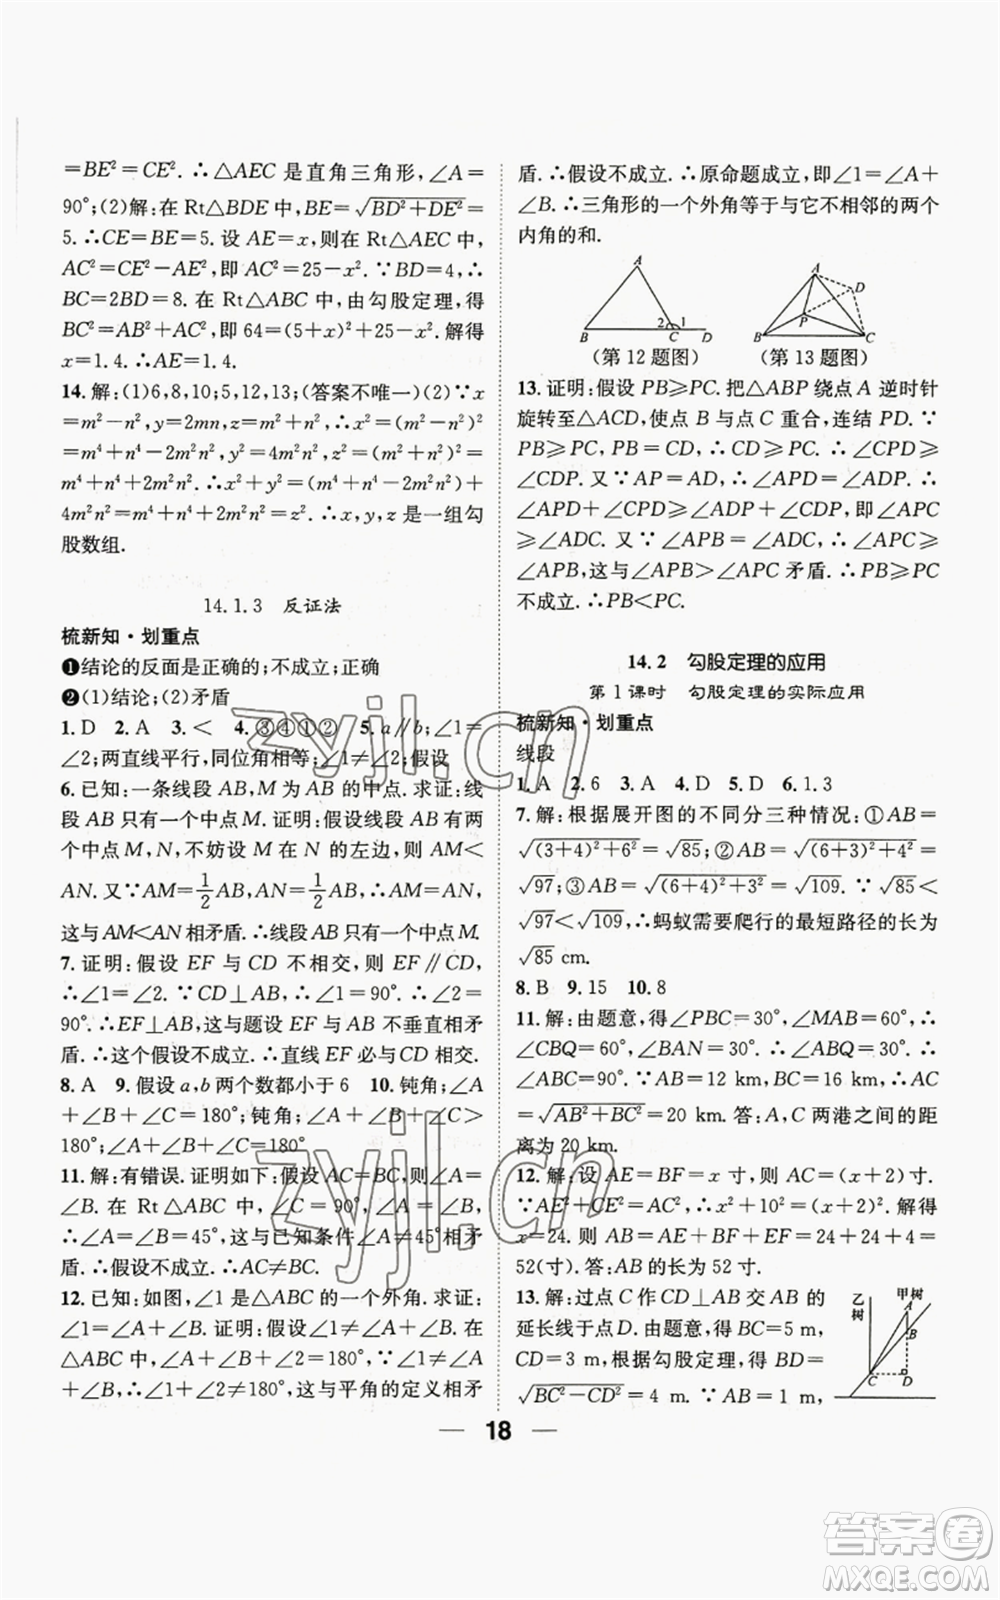 =BE²=CE². ∴△AEC 是直角三角形,∠A=
90°;(2)解:在 Rt△BDE 中,BE=√(BD²+DE²)=
5. ∴CE=BE=5. 设 AE=x,则在 Rt△AEC 中,
AC²=CE²-AE²,即 AC²=25-x². ∵BD=4,∴
BC=2BD=8. 在 Rt△ABC 中,由勾股定理,得
BC²=AB²+AC²,即 64=(5+x)²+25-x². 解得
x=1.4. ∴AE=1.4.
14. 解:(1)6,8,10;5,12,13;(答案不唯一)(2)∵x
=m²-n²,y=2mn,z=m²+n²,∴x²=(m²-n²)²
=m⁴+n⁴-2m²n²,y²=4m²n²,z²=(m²+n²)²=
m⁴+n⁴+2m²n². ∴x²+y²=m⁴+n⁴-2m²n²+
4m²n²=m⁴+n⁴+2m²n²=z². ∴x,y,z 是一组勾
股数组.
14.1.3 反证法
梳新知·划重点
❶结论的反面是正确的;不成立;正确
❷(1)结论;(2)矛盾
1. D 2. A 3. < 4. ③④①② 5. a∥b;∠1=
∠2;两直线平行,同位角相等;∠1≠∠2;假设
6. 已知:一条线段 AB,M 为 AB 的中点. 求证:线
段 AB 只有一个中点 M. 证明:假设线段 AB 有两
个中点 M、N,不妨设 M 在 N 的左边,则 AM<
AN. 又∵AM=1/2AB,AN=1/2AB,∴AM=AN,
这与 AM<AN 相矛盾. ∴线段 AB 只有一个中点 M.
7. 证明:假设 EF 与 CD 不相交,则 EF∥CD,
∴∠1=∠2. ∵CD⊥AB,∴∠1=90°. ∴∠2=
90°. ∴EF⊥AB,这与题设 EF 与 AB 不垂直相矛
盾. ∴这个假设不成立. ∴直线 EF 必与 CD 相交.
8. A 9. 假设 a,b 两个数都小于 6 10. 钝角;∠A
+∠B+∠C=180°;钝角;∠A+∠B+∠C>
180°;∠A+∠B+∠C=180°
11. 解:有错误. 证明如下:假设 AC=BC,则∠A=
∠B. 在 Rt△ABC 中,∠C=90°,∠A+∠B=90°,
∴∠A=∠B=45°,这与已知条件∠A≠45°矛盾.
∴假设不成立. ∴AC≠BC.
12. 已知:如图,∠1 是△ABC 的一个外角. 求证:
∠1=∠A+∠B. 证明:假设∠1≠∠A+∠B. 在
△ABC 中,∠A+∠B+∠2=180°,∴∠A+∠B=
180°-∠2. ∴∠1+∠2≠180°,这与平角的定义相矛
盾. ∴假设不成立. ∴原命题成立,即∠1=∠A+
∠B. ∴三角形的一个外角等于与它不相邻的两个
内角的和.
A B C D 2 1
A B C D P
(第12题图) (第13题图)
13. 证明:假设 PB≥PC. 把△ABP 绕点 A 逆时针
旋转至△ACD,使点 B 与点 C 重合,连结 PD. ∵
PB≥PC,PB=CD,∴CD≥PC. ∴∠CPD≥
∠CDP. 又∵AP=AD,∴∠APD=∠ADP.
∴∠APD+∠CPD≥∠ADP+∠CDP,即∠APC
≥∠ADC. 又∵∠APB=∠ADC,∴∠APC≥
∠APB,这与∠APB>∠APC 矛盾. ∴PB≥PC
不成立. ∴PB<PC.
14.2 勾股定理的应用
第1课时 勾股定理的实际应用
梳新知·划重点
线段
1. A 2. 6 3. A 4. D 5. D 6. 1.3
7. 解:根据展开图的不同分三种情况:①AB=
√((3+4)²+6²)=√85;②AB=√((6+3)²+4²)=
√97;③AB=√((6+4)²+3²)=√109. ∵√85<
√97<√109,∴蚂蚁需要爬行的最短路径的长为
√85 cm.
8. B 9. 15 10. 8
11. 解:由题意,得∠PBC=30°,∠MAB=60°,∴
∠CBQ=60°,∠BAN=30°. ∴∠ABQ=30°. ∴
∠ABC=90°. ∵AB=12 km,BC=16 km,∴AC
=√(AB²+BC²)=20 km. 答:A,C 两港之间的距
离为 20 km.
12. 解:设 AE=BF=x 寸,则 AC=(x+2)寸.
∵AE²+CE²=AC²,∴x²+10²=(x+2)². 解得
x=24. 则 AB=AE+BF+EF=24+24+4=
52(寸). 答:AB 的长为 52 寸.
13. 解:过点 C 作 CD⊥AB 交 AB 的
延长线于点 D. 由题意,得 BC=5 m,
CD=3 m,根据勾股定理,得 BD=
√(BC²-CD²)=4 m. ∵AB=1 m,
乙树 甲树 A B C D
18
zyjl.cn
zyjl.cn
答案圈
MXQE.COM